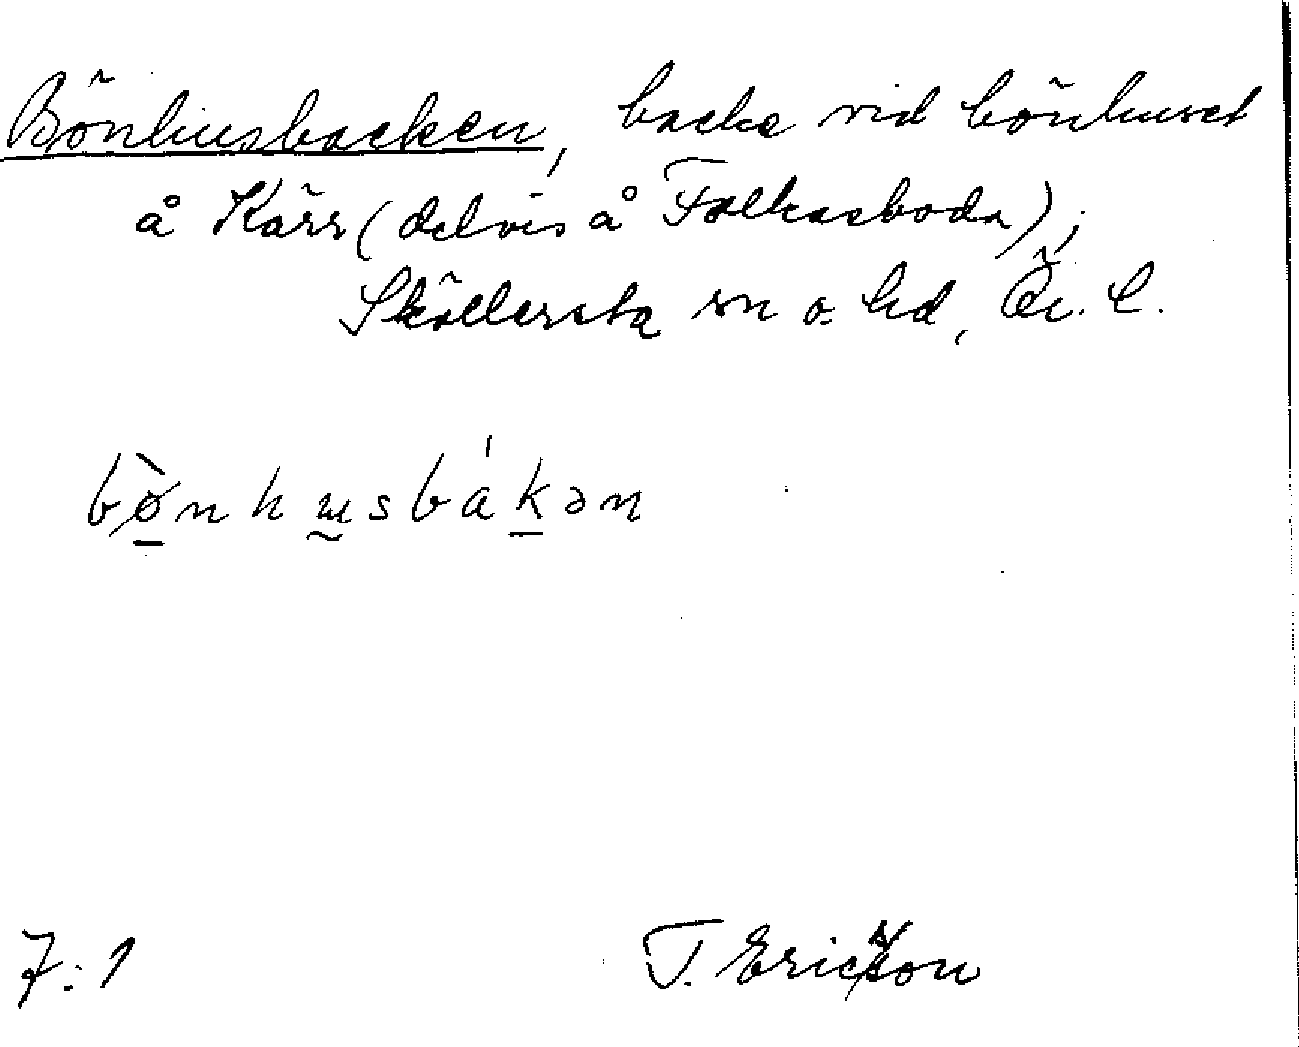 Bönhusbacken, backe vid bönhuset
å Kärr (delvis å Folkesboda);
Sköllersta sn o. hd, Ör. l.
bø̀nhusbákən
7:1
T. Ericsson